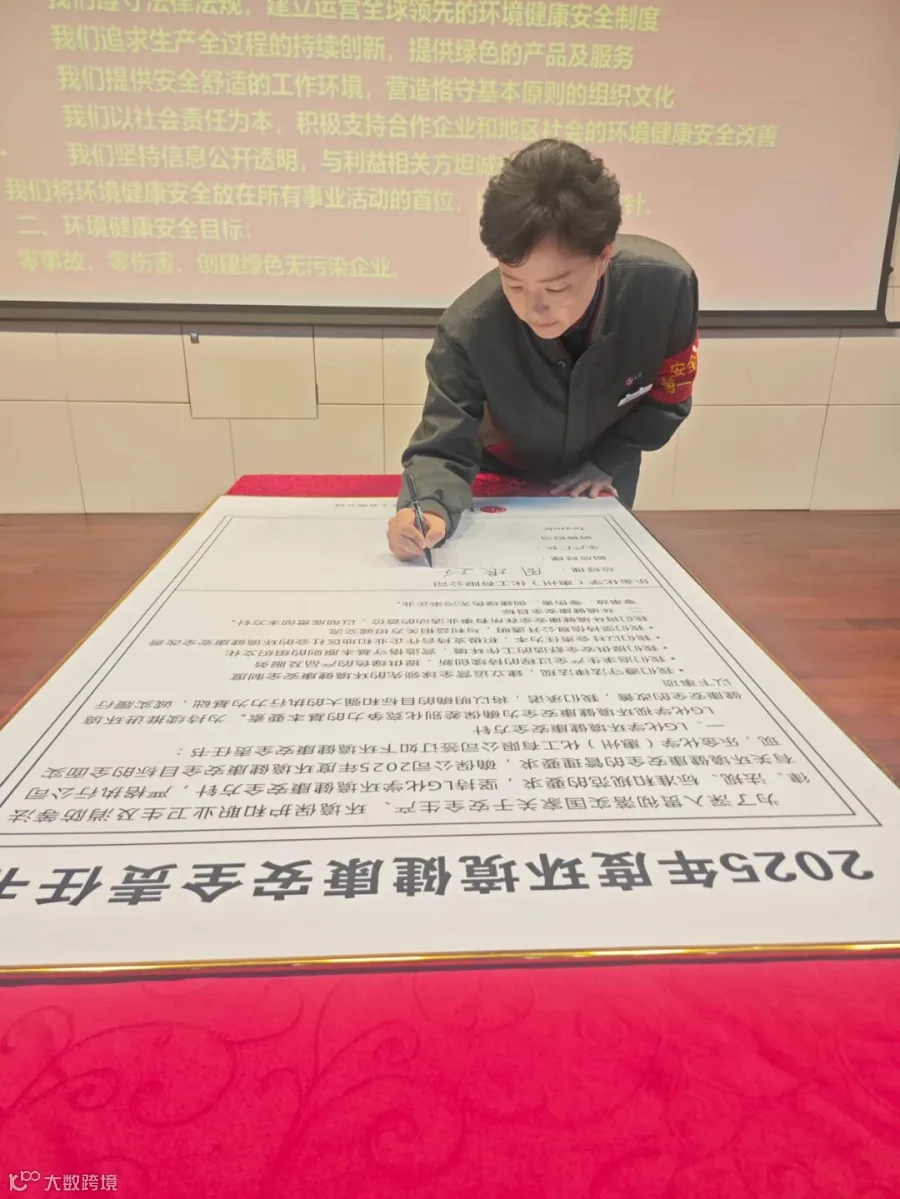 我们遵守法律法规，建立运营全球领先的环境健康安全制度
我们追求生产全过程的持续创新，提供绿色的产品及服务
我们提供安全舒适的工作环境，营造恪守基本原则的组织文化
我们以社会责任为本，积极支持合作企业和地区社会的环境健康安全改善
我们坚持信息公开透明，与利益相关方坦诚
我们将环境健康安全放在所有事业活动的首位，
针。
二、环境健康安全目标：
零事故、零伤害、创建绿色无污染企业。
安全
第一
LG
2025年度环境健康安全责任书
为了深入贯彻落实国家关于安全生产、环境保护和职业卫生及消防等法
律、法规、标准和规范的要求，坚持LG化学环境健康安全方针，严格执行公司
有关环境健康安全的管理要求，确保公司2025年度环境健康安全目标的全面实
现，乐金化学（惠州）化工有限公司签订如下环境健康安全责任书：
一、LG化学环境健康安全方针
LG化学视环境健康安全为确保差别化竞争力的基本要素。为持续推进环境
健康安全的改善，我们承诺，将以明确的目标和强大的执行力为基础，诚实履行
以下事项
• 我们遵守法律法规，建立运营全球领先的环境健康安全制度
• 我们追求生产全过程的持续创新，提供绿色的产品及服务
• 我们提供安全舒适的工作环境，营造恪守基本原则的组织文化
• 我们以社会责任为本，积极支持合作企业和地区社会的环境健康安全改善
我们坚持信息公开透明，与利益相关方坦诚交流
我们将环境健康安全放在所有事业活动的首位，以彻底贯彻本方针。
二、环境健康安全目标
零事故、零伤害、创建绿色无污染企业。
乐金化学（惠州）化工有限公司
总经理：
副总经理：
生产厂长：
Team长：
大数跨境